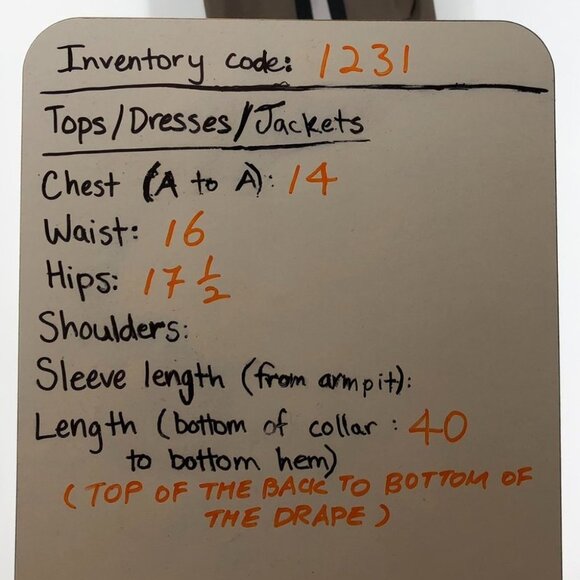 Inventory code: 1231
Tops/Dresses/Jackets
Chest (A to A): 14
Waist: 16
Hips: 17 1/2
Shoulders:
Sleeve length (from armpit):
Length (bottom of collar : 40
to bottom hem)
(TOP OF THE BACK TO BOTTOM OF
THE DRAPE)